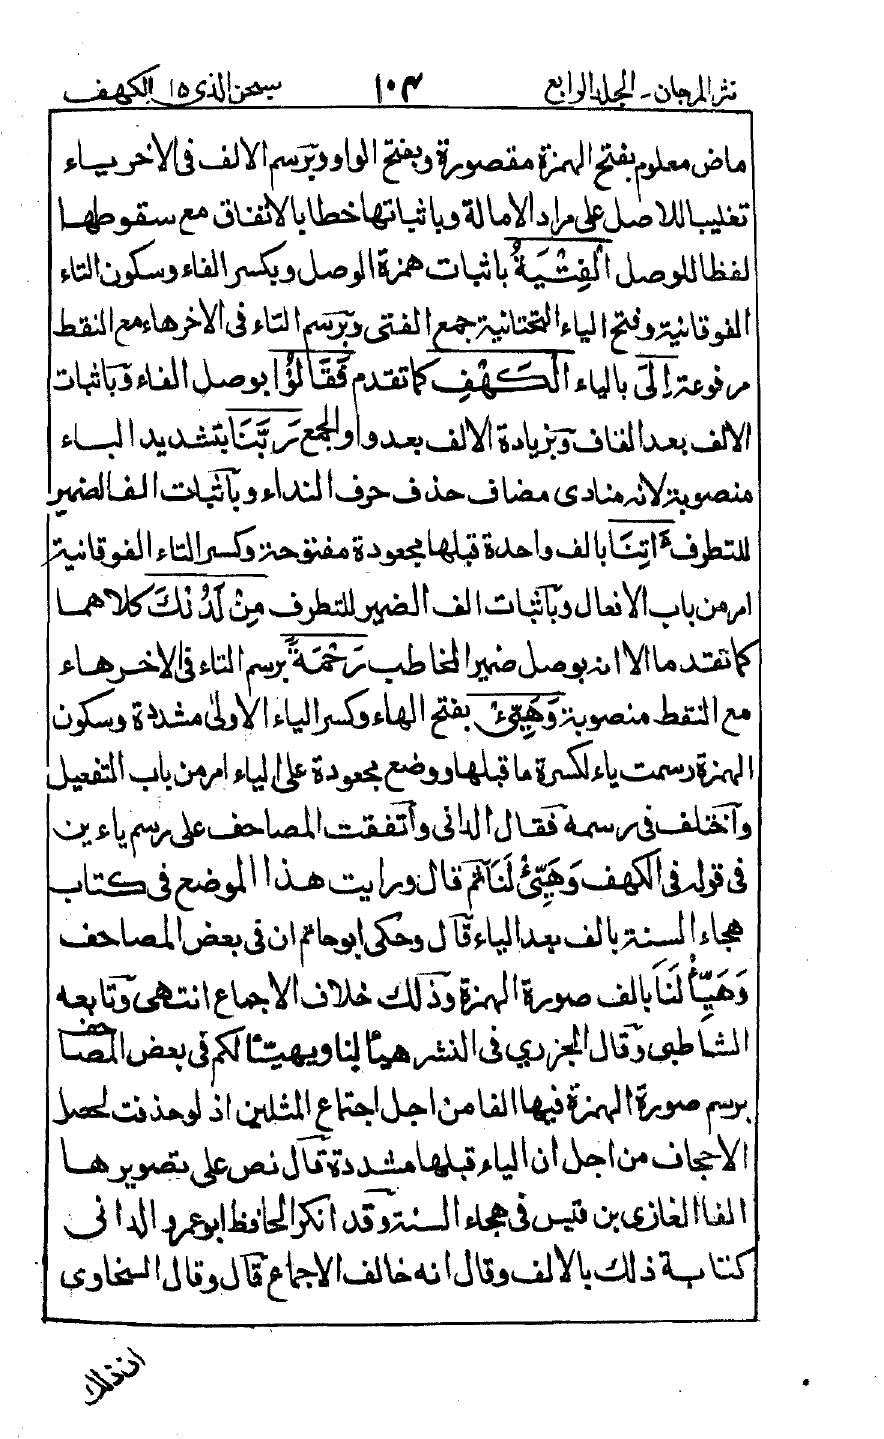 نثر المرجان - الجلد الرابع ١٠٤ سبحن الذی ١٥ الكهف
ماض معلوم بفتح الهمزة مقصورة وبفتح الواو وبرسم الالف فى الاخر بياء
تغليبا للاصل على مراد الامالة وباثباتها خطا بالاتفاق مع سقوطها
لفظا للوصل الْفِتْيَةُ باثبات همزة الوصل وبكسر الفاء وسكون التاء
الفوقانية وفتح الياء التحتانية جمع الفتى وبرسم التاء فى الاخر هاء مع النقط
مرفوعة اِلَى بالياء الْكَهْفِ كما تقدم فَقَالُوْا بوصل الفاء وباثبات
الالف بعد القاف وبزيادة الالف بعد واو الجمع رَبَّنَا بتشديد الباء
منصوبة لانه منادى مضاف حذف حرف النداء وباثبات الف الضمير
للتطرف ءَاتِنَا بالف واحدة قبلها مجعودة مفتوحة وكسر التاء الفوقانية
امر من باب الافعال وباثبات الف الضمير للتطرف مِنْ لَدُنْكَ كلاهما
كما تقدما الا انه بوصل ضمير المخاطب رَحْمَةً برسم التاء فى الاخر هاء
مع النقط منصوبة وَهَيِّئْ بفتح الهاء وكسر الياء الاولى مشددة وسكون
الهمزة رسمت ياء لكسرة ما قبلها ووضع مجعودة على الياء امر من باب التفعيل
واختلف فى رسمه فقال الدانى واتفقت المصاحف على رسم ياءين
فى قوله فى الكهف وَهَيِّئْ لَنَا ثم قال ورايت هذا الموضع فى كتاب
هجاء السنة بالف بعد الياء قال وحكى ابو حاتم ان فى بعض المصاحف
وَهَيِّأْ لَنَا بالف صورة الهمزة وذلك خلاف الاجماع انتهى وتابعه
الشاطبى وقال الجزري فى النشر هيأ لنا ويهيئا لكم فى بعض المصاحف
برسم صورة الهمزة فيها الفا من اجل اجتماع المثلين اذ لو حذفت لحصل
الاجحاف من اجل ان الياء قبلها مشددة قال نص على تصويرها
الفا الغازى بن قيس فى هجاء السنة وقد انكر الحافظ ابو عمرو الدانى
كتابة ذلك بالالف وقال انه خالف الاجماع قال وقال السخاوى
ان ذلك